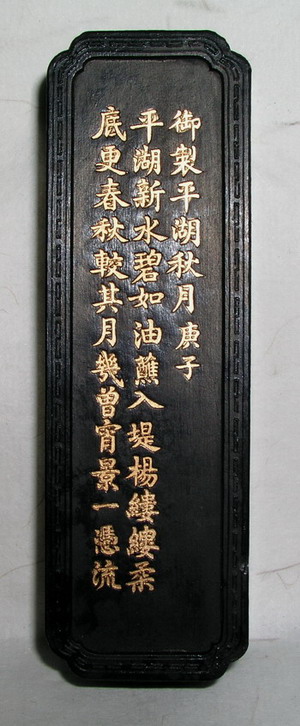 御製平湖秋月庚子
平湖新水碧如油蘸入堤楊縷縷柔
底更春秋較其月幾曾宵景一憑流